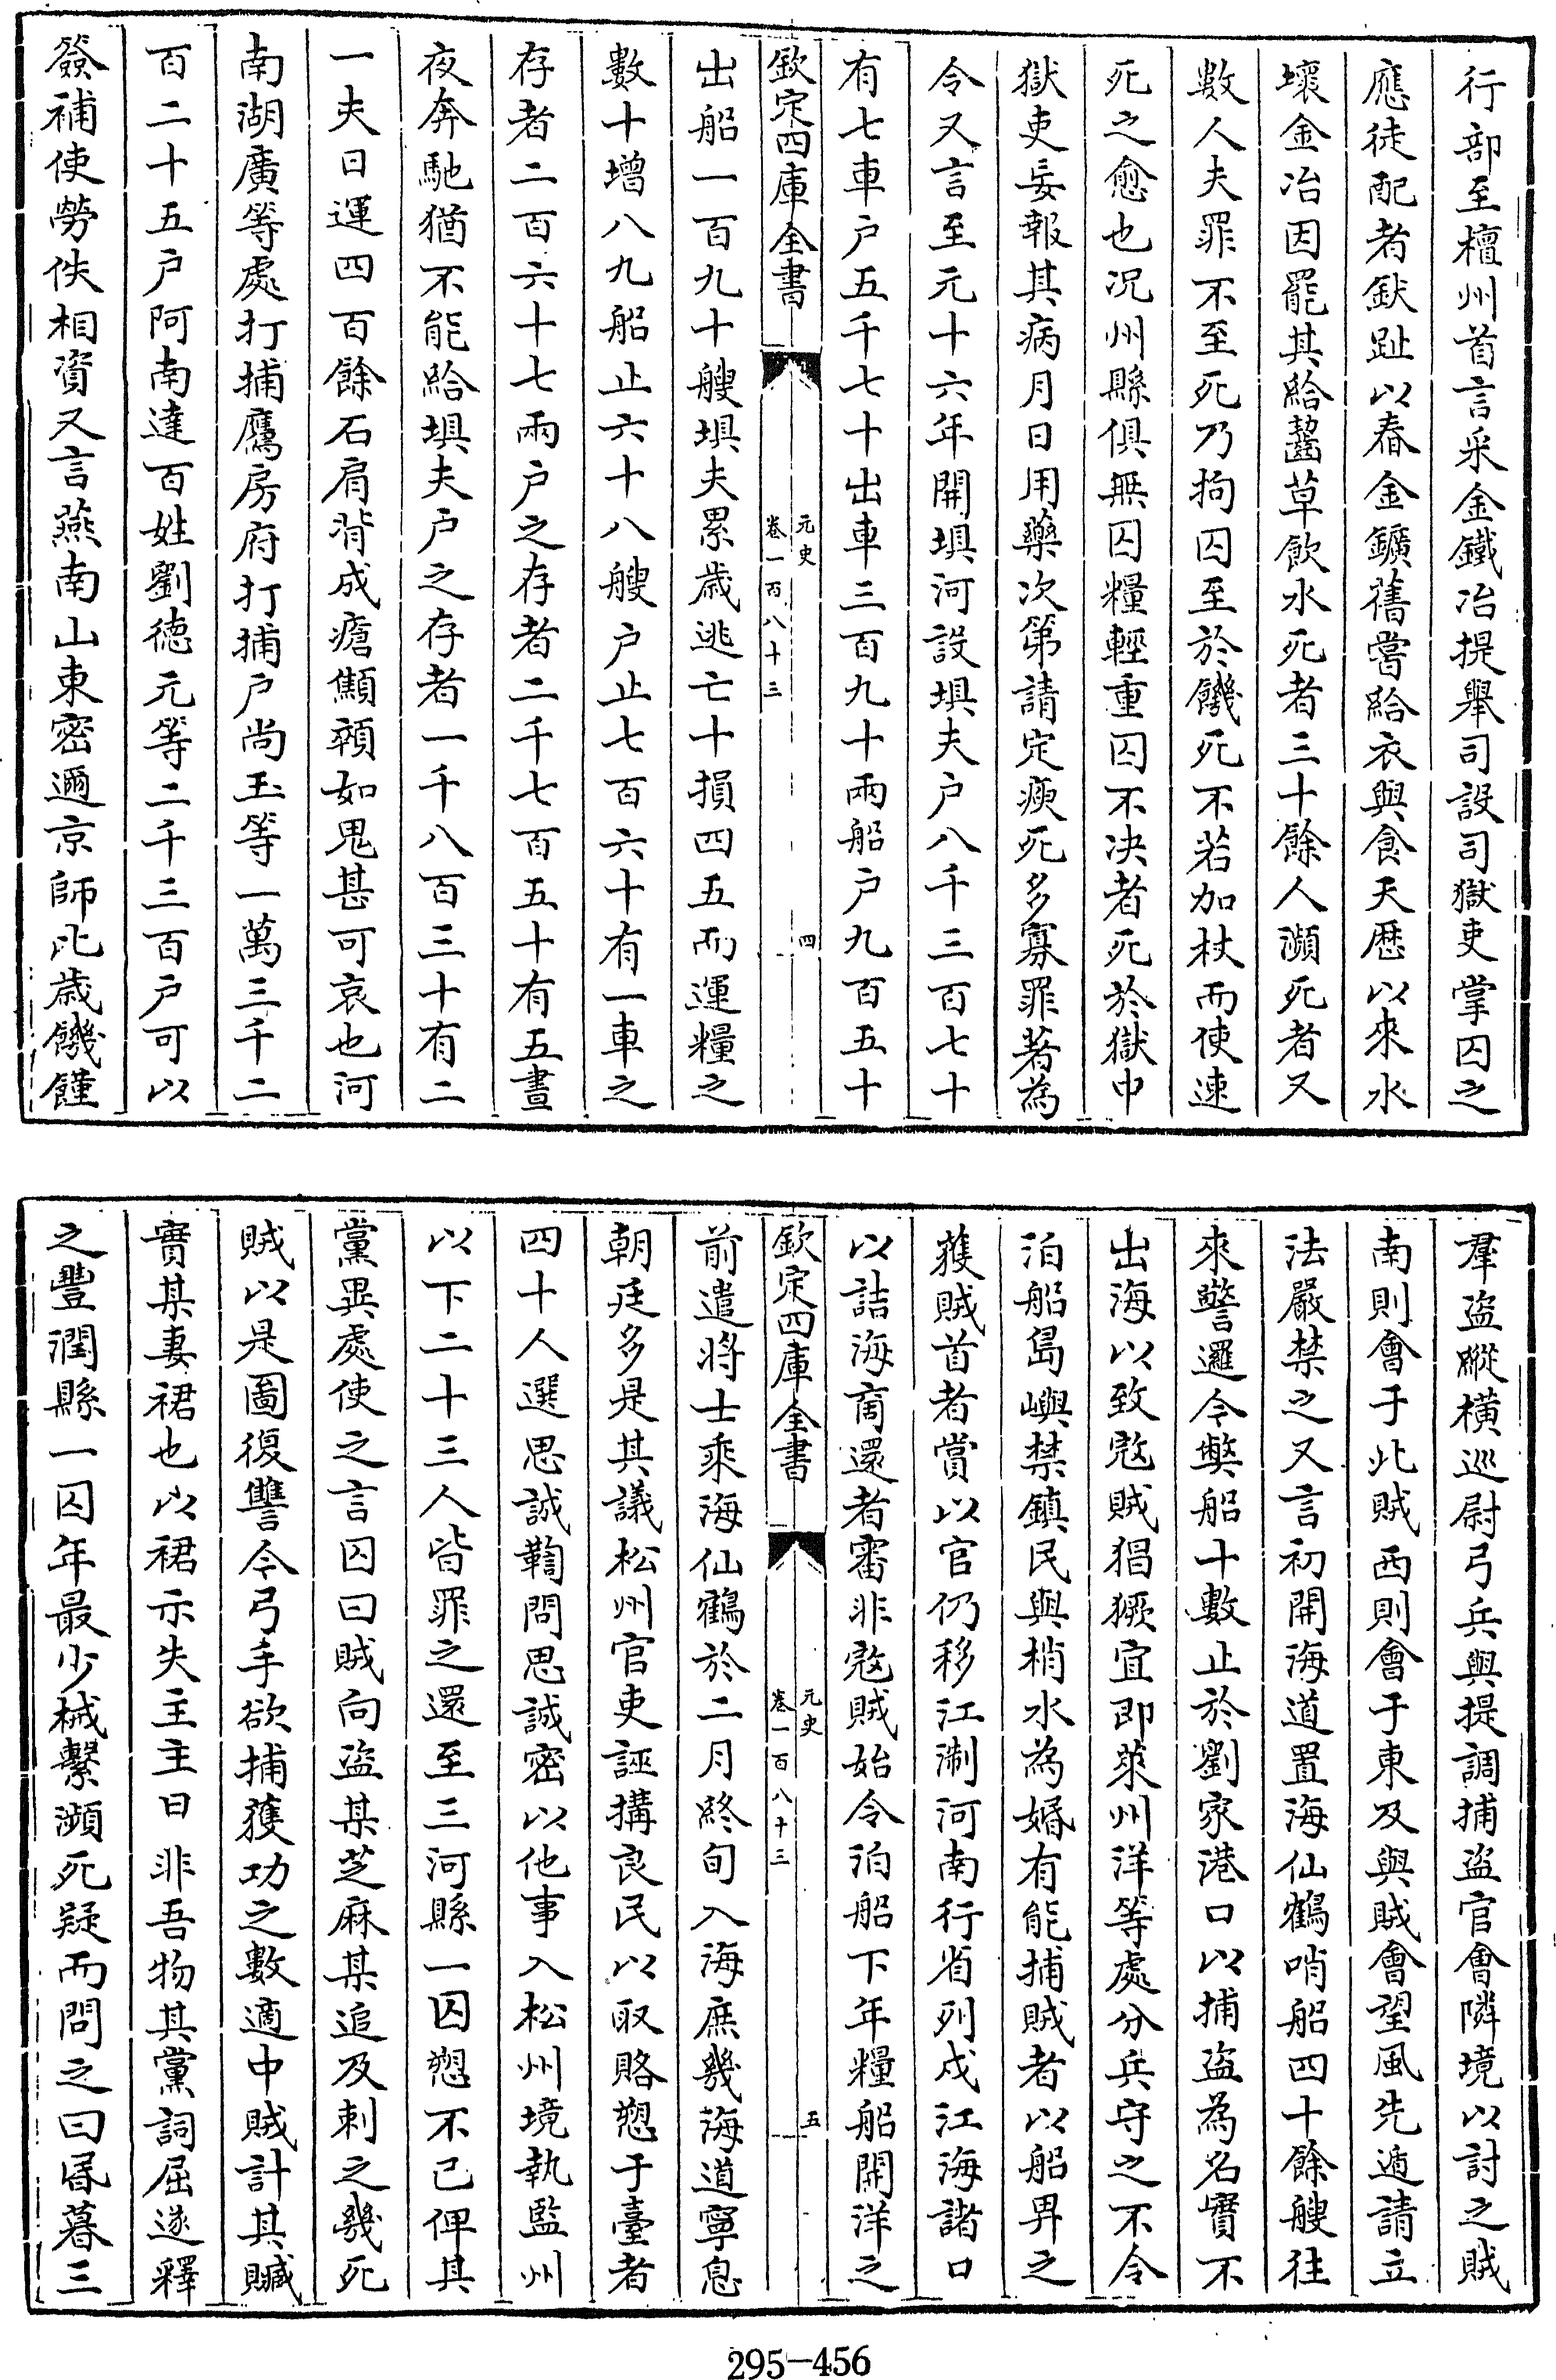 行部至檀州首言采金鐵冶提舉司設司獄吏掌囚之
應徒配者釱趾以舂金鑛舊嘗給衣與食天厯以來水
壞金冶因罷其給齧草飲水死者三十餘人瀕死者又
數人夫罪不至死乃拘囚至於饑死不若加杖而使速
死之愈也况州縣俱無囚糧輕重囚不决者死於獄中
獄吏妄報其病月日用藥次第請定瘐死多寡罪著為
令又言至元十六年開垻河設垻夫户八千三百七十
有七車户五千七十出車三百九十兩船户九百五十
欽定四庫全書
元史
卷一百八十三
四
出船一百九十艘垻夫累歲逃亡十損四五而運糧之
數十增八九船止六十八艘户止七百六十有一車之
存者二百六十七兩户之存者二千七百五十有五晝
夜奔馳猶不能給垻夫户之存者一千八百三十有二
一夫日運四百餘石肩背成瘡顦顇如鬼甚可哀也河
南湖廣等處打捕鷹房府打捕户尚玉等一萬三千二
百二十五户阿南達百姓劉德元等二千三百户可以
簽補使勞佚相資又言燕南山東密邇京師比歲饑饉
羣盜縱橫巡尉弓兵與提調捕盜官會隣境以討之賊
南則會于北賊西則會于東及與賊會望風先遁請立
法嚴禁之又言初開海道置海仙鶴哨船四十餘艘往
來警邏今弊船十數止於劉家港口以捕盜為名實不
出海以致㓂賊猖獗宜即萊州洋等處分兵守之不令
泊船島嶼禁鎮民與梢水為婚有能捕賊者以船畀之
獲賊首者賞以官仍移江淛河南行省列戍江海諸口
以詰海商還者審非㓂賊始令泊船下年糧船開洋之
欽定四庫全書
元史
卷一百八十三
五
前遣將士乘海仙鶴於二月終旬入海庶幾海道寧息
朝廷多是其議松州官吏誣搆良民以取賂愬于臺者
四十人選思誠鞫問思誠密以他事入松州境執監州
以下二十三人皆罪之還至三河縣一囚愬不已俾其
黨異處使之言囚曰賊向盜某芝麻某追及刺之幾死
賊以是圖復讐今弓手欲捕獲功之數適中賊計其贓
實某妻裙也以裙示失主主曰非吾物其黨詞屈遂釋
之豐潤縣一囚年最少械繫瀕死疑而問之曰昏暮三
295-456